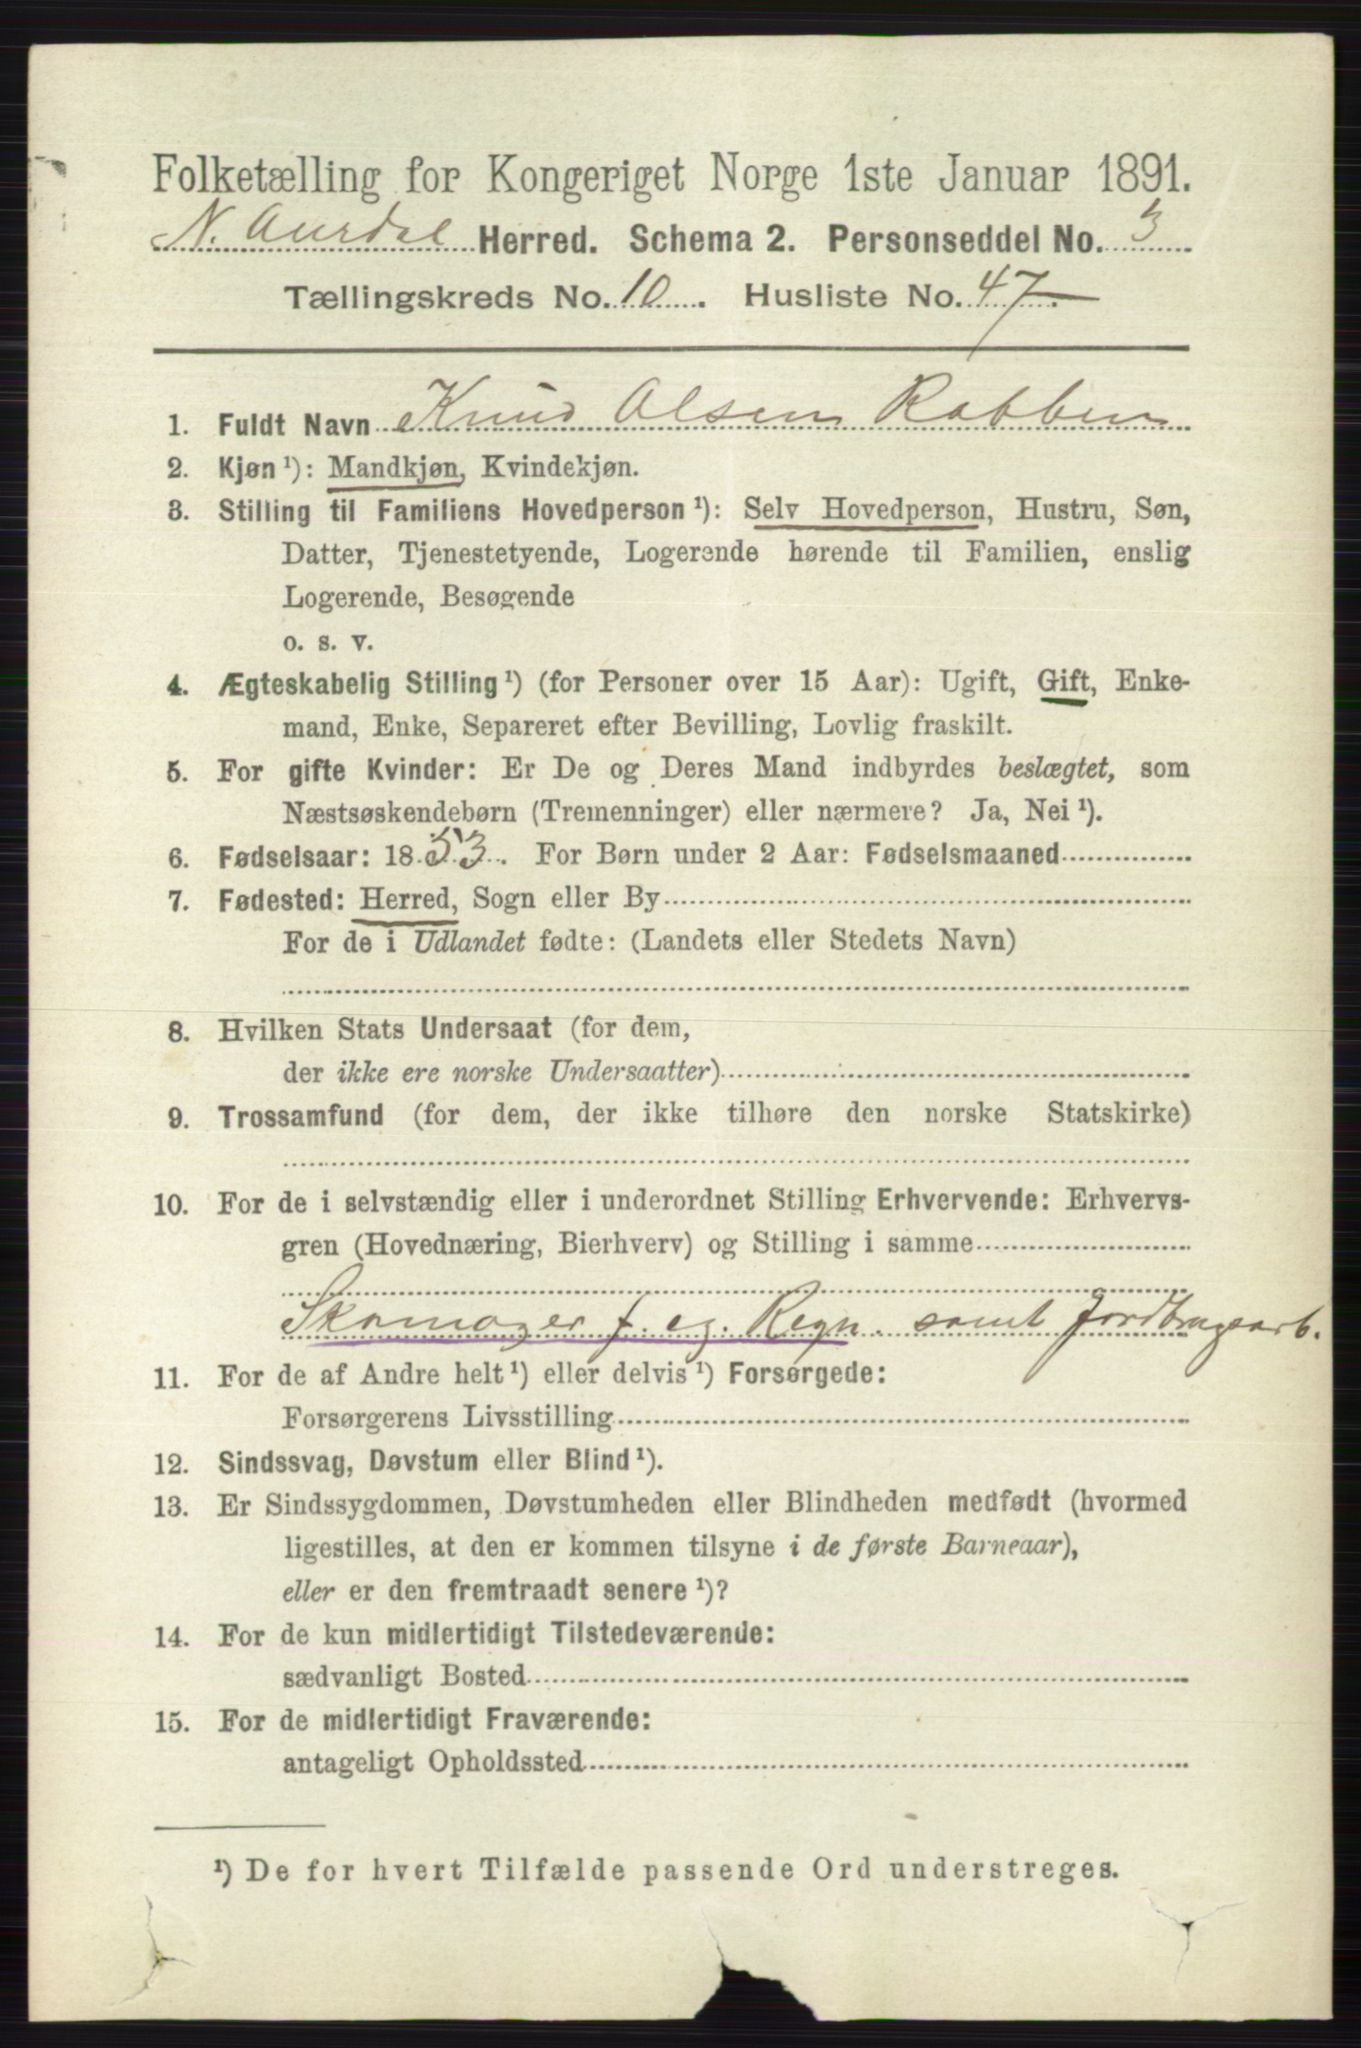 Folketælling for Kongeriget Norge 1ste Januar 1891.
N. Aurdal Herred. Schema 2. Personseddel No. 3
Tællingskreds No. 10. Husliste No. 47.
1. Fuldt Navn Knud Olsen Robben
2. Kjøn ¹): Mandkjøn, Kvindekjøn.
3. Stilling til Familiens Hovedperson ¹): Selv Hovedperson, Hustru, Søn,
Datter, Tjenestetyende, Logerende hørende til Familien, enslig
Logerende, Besøgende
o. s. v.
4. Ægteskabelig Stilling ¹) (for Personer over 15 Aar): Ugift, Gift, Enke-
mand, Enke, Separeret efter Bevilling, Lovlig fraskilt.
5. For gifte Kvinder: Er De og Deres Mand indbyrdes beslægtet, som
Næstsøskendebørn (Tremenninger) eller nærmere? Ja, Nei ¹).
6. Fødselsaar: 1853. For Børn under 2 Aar: Fødselsmaaned
7. Fødested: Herred, Sogn eller By
For de i Udlandet fødte: (Landets eller Stedets Navn)
8. Hvilken Stats Undersaat (for dem,
der ikke ere norske Undersaatter)
9. Trossamfund (for dem, der ikke tilhøre den norske Statskirke)
10. For de i selvstændig eller i underordnet Stilling Erhvervende: Erhvervs-
gren (Hovednæring, Bierhverv) og Stilling i samme
Skomager f. eg. Regn. samt Jordbrugsarb.
11. For de af Andre helt ¹) eller delvis ¹) Forsørgede:
Forsørgerens Livsstilling
12. Sindssvag, Døvstum eller Blind ¹).
13. Er Sindssygdommen, Døvstumheden eller Blindheden medfødt (hvormed
ligestilles, at den er kommen tilsyne i de første Barneaar),
eller er den fremtraadt senere ¹)?
14. For de kun midlertidigt Tilstedeværende:
sædvanligt Bosted
15. For de midlertidigt Fraværende:
antageligt Opholdssted
¹) De for hvert Tilfælde passende Ord understreges.